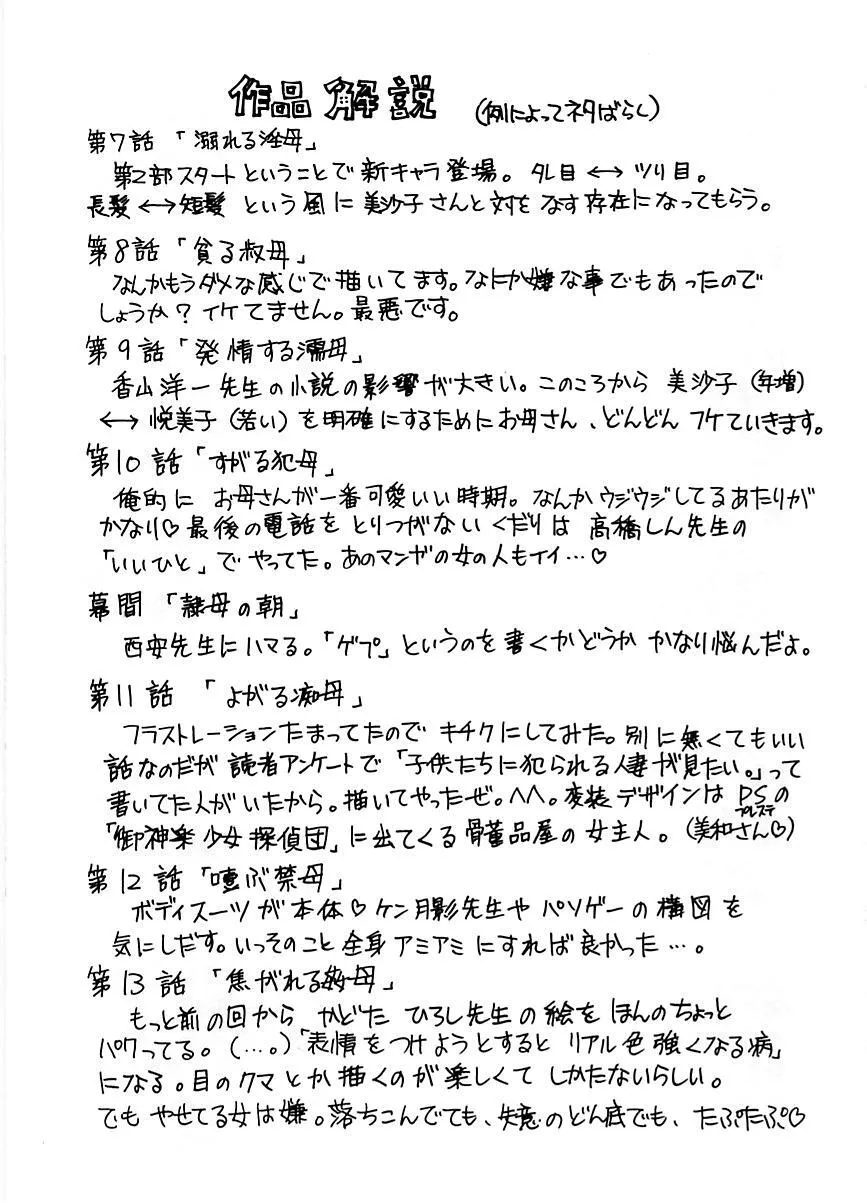 作品解説 (例によってネタばらし)
第7話「溺れる淫母」
第2部スタートということで新キャラ登場。タレ目←→ツリ目。
長髪←→短髪という風に美沙子さんと対をなす存在になってもらう。
第8話「貪る叔母」
なんかもうダメな感じで描いてます。なにか嫌な事でもあったので
しょうか?イケてません。最悪です。
第9話「発情する濡母」
香山洋一先生の小説の影響が大きい。このころから美沙子(年増)
←→悦美子(若い)を明確にするためにお母さん、どんどんフケていきます。
第10話「すがる犯母」
俺的にお母さんが一番可愛いい時期。なんかウジウジしてるあたりが
かなり♡最後の電話をとりつがないくだりは高橋しん先生の
「いいひと」でやってた。あのマンガの女の人もイイ…♡
幕間「隷母の朝」
西安先生にハマる。「ゲプ」というのを書くかどうかかなり悩んだよ。
第11話「よがる痴母」
フラストレーションたまってたのでキチクにしてみた。別に無くてもいい
話なのだが読者アンケートで「子供たちに犯られる人妻が見たい。」って
書いてた人がいたから。描いてやったぜ。^^。変装デザインはPSの
プレステ
「御神楽少女探偵団」に出てくる骨董品屋の女主人。(美和さん♡)
第12話「噎ぶ禁母」
ボディスーツが本体♡ケン月影先生やパソゲーの構図を
気にしだす。いっそのこと全身アミアミにすれば良かった…。
第13話「焦がれる母」
もっと前の回からかどたひろし先生の絵をほんのちょっと
パクってる。(…。)「表情をつけようとするとリアル色強くなる病」
になる。目のクマとか描くのが楽しくてしかたないらしい。
でもやせてる女は嫌。落ちこんでても、失意のどん底でも、たぷたぷ♡